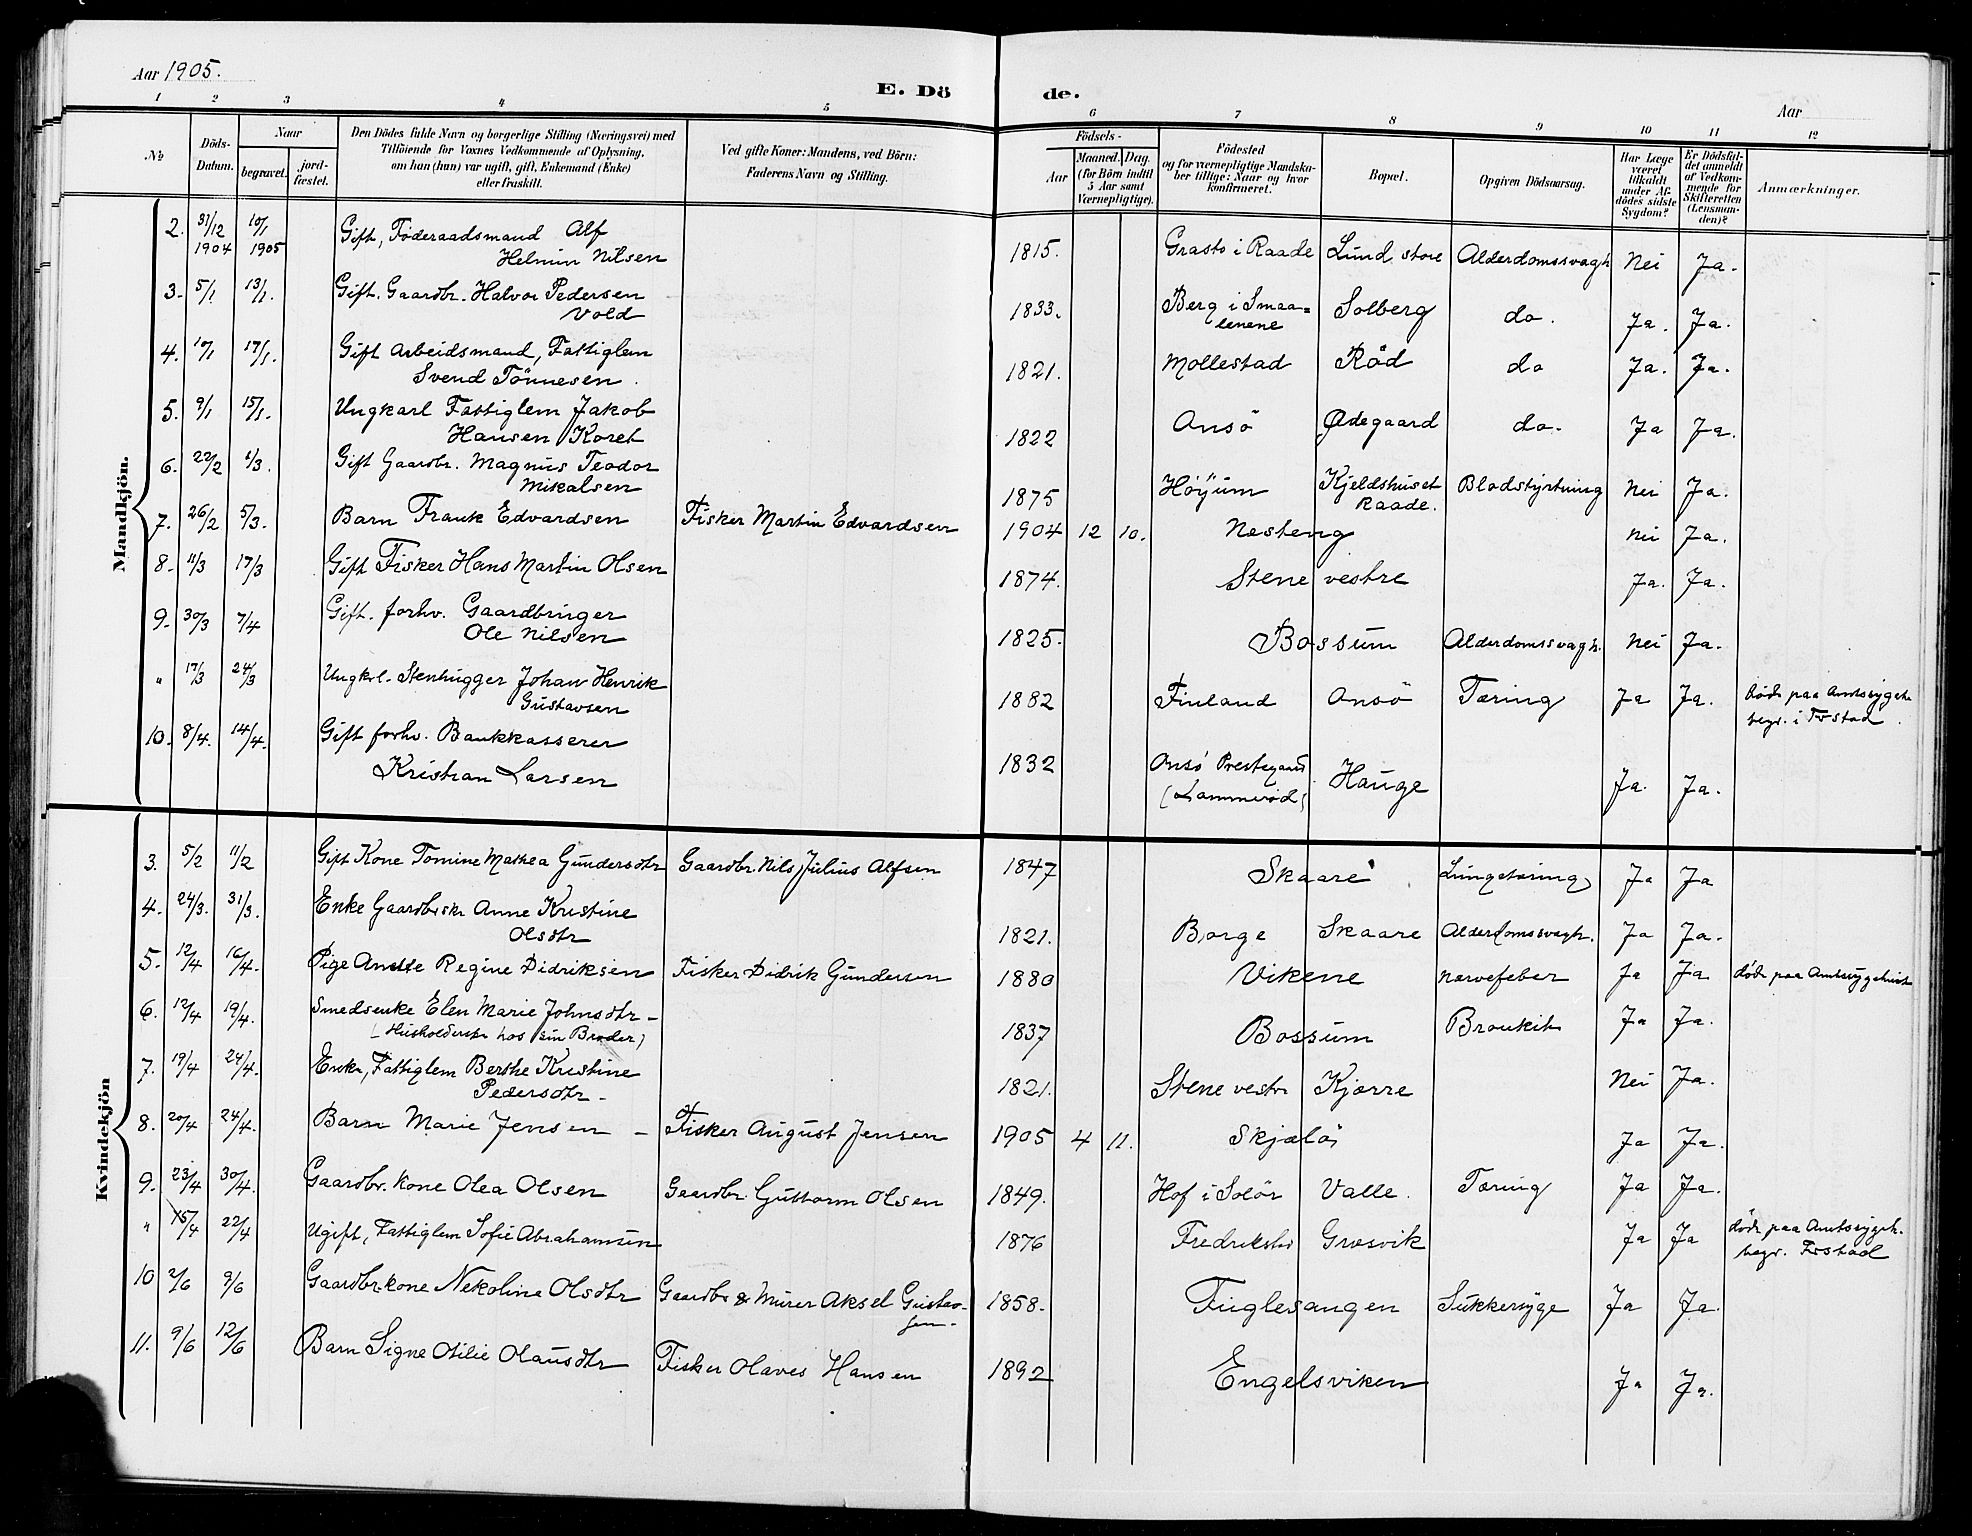 Aar 1905.
E. Dö de.
Aar
1 2 3 4 5 6 7 8 9 10 11 12
№
Döds-Datum.
Naar
begravet.
jord-fæstet.
Den Dödes fulde Navn og borgerlige Stilling (Næringsvei) med
Tilföiende for Voxnes Vedkommende af Oplysning,
om han (hun) var ugift, gift, Enkemand (Enke)
eller fraskilt.
Ved gifte Koner: Mandens, ved Börn:
Faderens Navn og Stilling.
Födsels-
Aar
Maaned. Dag.
(for Börn indtil
5 Aar samt
Værnepligtige).
Födested
og for værnepligtige Mandska-
ber tillige: Naar og hvor
konfirmeret.
Bopæl.
Opgiven Dödsaarsag.
Har Læge
været
tilkaldt
under Af-
dödes sidste
Sygdom?
Er Dödsfal-
det anmeldt
af Vedkom-
mende for
Skifteretten
(Lensman-
den)?
Anmærkninger.
Mandkjön.
2. 31/12 10/1 Gift, Föderaadsmand Alf
1904 1905 Helmin Nilsen 1815. Grasto i Raade Lund, store Alderdomssvagh Nei Ja.
3. 5/1 13/1. Gift. Gaardbr. Halvor Pedersen
Vold 1833. Berg i Smaa=
lenene Solberg do. Ja. Ja.
4. 10/1 17/1. Gift Arbeidsmand, Fattiglem
Svend Tönnesen. 1821. Mollestad Röd do Ja. Ja.
5. 9/1 15/1. Ungkarl Fattiglem Jakob
Hansen Koret 1822 Onsö Ødegaard do. Ja Ja.
6. 22/2 1/3. Gift Gaardbr. Magnus Teodor
Mikalsen 1875 Höyum Kjeldshuset
Raade. Blodstyrtning Nei Ja.
7. 26/2 5/3. Barn Frank Edvardsen Fisker Martin Edvardsen 1904 12 10. Næsteng Nei Ja.
8. 11/3 17/3 Gift Fisker Hans Martin Olsen 1874. Stene vestre Ja. Ja.
9. 30/3 7/4 Gift. forhv. Gaardbruger
Ole Nilsen 1825. Bossum Alderdomssvagh. Nei Ja.
" 17/3 24/3 Ungkrl. Stenhugger Johan Henrik
Gustavsen 1882 Finland Onsö Tæring Ja Ja. död paa Amtssygeh.
begr. i Frstad.
10. 8/4. 14/4. Gift forhv. Bankkasserer
Kristian Larsen 1832 Onsö Prestegaard
(Lammeröd) Hauge Ja. Ja.
Kvindekjön
3. 5/2 11/2 Gift Kone Tomine Mathea Gundersdtr Gaardbr. Nils Julius Alfsen 1847 Skaare Lungetæring Ja Ja
4. 24/3. 31/3. Enke Gaardbrsk. Anne Kristine
Olsdtr 1821. Borge Skaare Alderdomssvagh. Ja Ja.
5. 12/4 16/4. Pige Anette Regine Didriksen Fisker Didrik Gundersen 1880 Vikene Nervefeber Ja Ja död paa Amtssygehuset
6. 12/4 19/4. Smedsenke Elen Marie Johnsdtr -
(Husholderske hos sin Broder) 1837 Bossum Bronkit Ja Ja.
7. 19/4 24/4. Enke, Fattiglem Berthe Kristine
Pedersdtr - 1821. Stene vestr. Kjærre Nei Ja.
8. 20/4 24/4. Barn Marie Jensen - Fisker August Jensen 1905 4 11. Skjælö Ja Ja.
9. 23/4 30/4. Gaardbr. kone Olea Olsen Gaardbr Guttorm Olsen 1849. Hof i Solör Valle. Tæring Ja Ja.
" 15/4 22/4 Ugift, Fattiglem Sofie Abrahamsen 1876 Fredrikstd Græsvik Ja Ja död paa Amtssygeh.
begr. Frstad
10 2/6 9/6 Gaardbr.kone Nekoline Olsdtr Gaardbr & Murer Aksel Gustav-
sen- 1858. Fuglesangen Sukkersyge Ja Ja.
11. 9/6 12/6 Barn Signe Otilie Olausdtr Fisker Olaves Hansen 1892 Engelsviken Ja Ja.